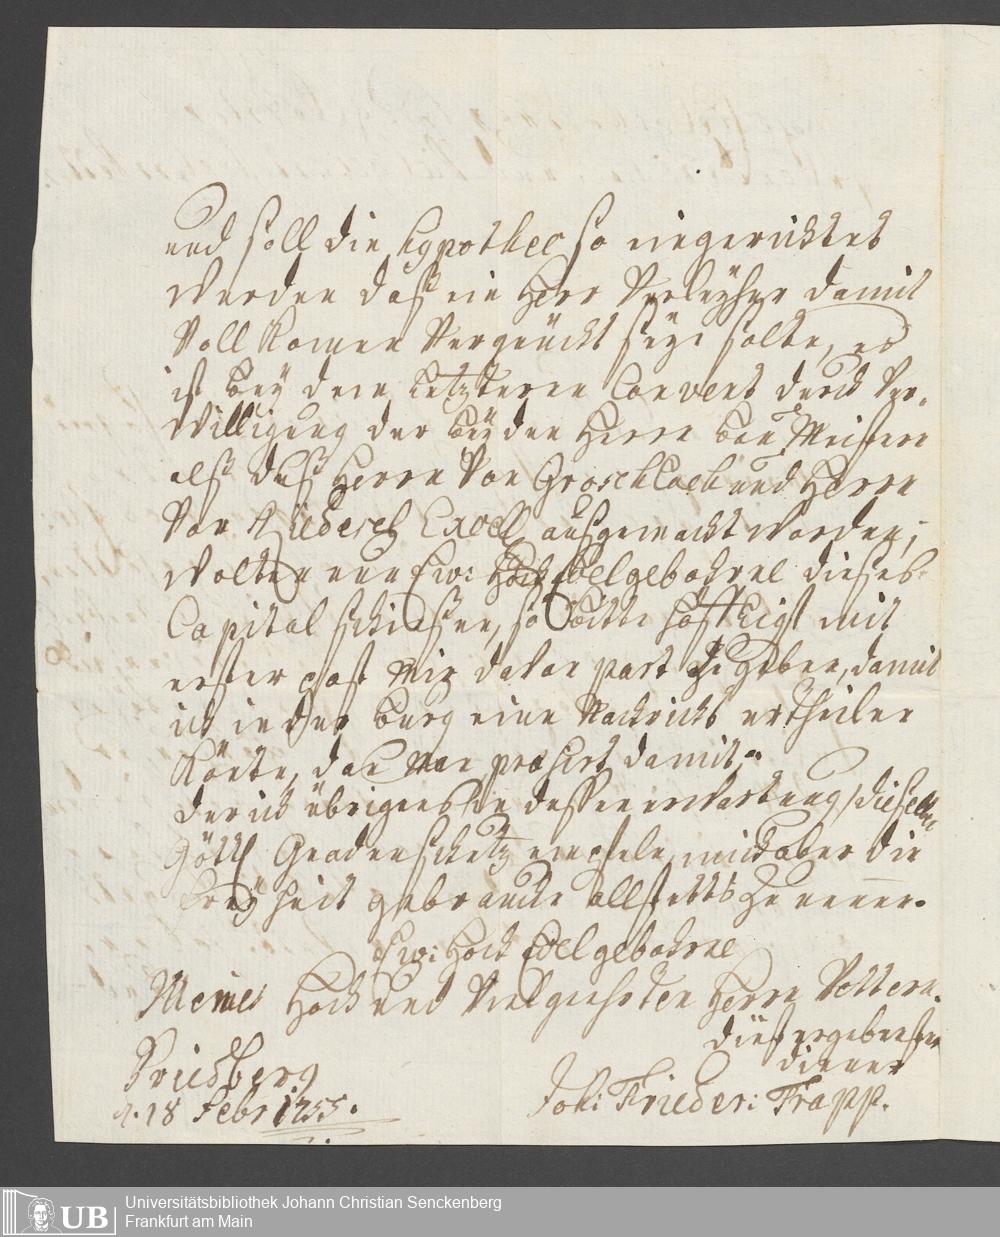 und soll die hypothec so eingerichtet
werden daß ein Herr Verleyher damit
Vollkomen Vergnückt seyn solte, es
ist bey dem Letzteren Convent durch Ver-
Willigung der beyden Herrn bau Meistern
alß deß Herrn Von Groschlach und Herrn
Von Excell ausgemacht worden,
wolten nun Ew: Hoch Edelgebohrne dießes
Capital schießen, so bitte höfflichst mit
erster post Mir davon part zu geben, damit
ich in der burg eine Nachricht ertheilen
könte, dan Man damit,
der ich übrigens in dessen erwartung dieselbe
Göttl Gnadenschutz empfele, mich aber die
freyheit gebrauche allstetts zu nennen.
Ew: Hoch Edelgebohrne
Meines Hoch und Vielgeehrten Herrn Vettern.
dienst ergebenster
diener
Friedberg
d. 18 Febr 1755.
Joh: Frieder: Trapp.
Universitätsbibliothek Johann Christian Senckenberg
Frankfurt am Main
UB